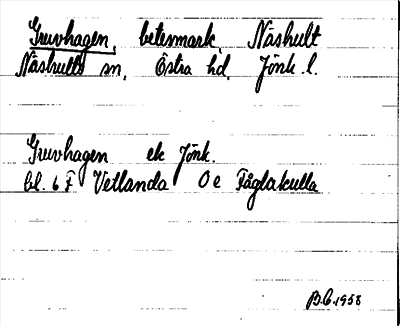 Gruvhagen, betesmark, Näshult
Näshults sn, Östra hd, Jönk. l.
Gruvhagen ek Jönk.
bl. 6 F Vetlanda 0 e Fåglakulla
B.G. 1958